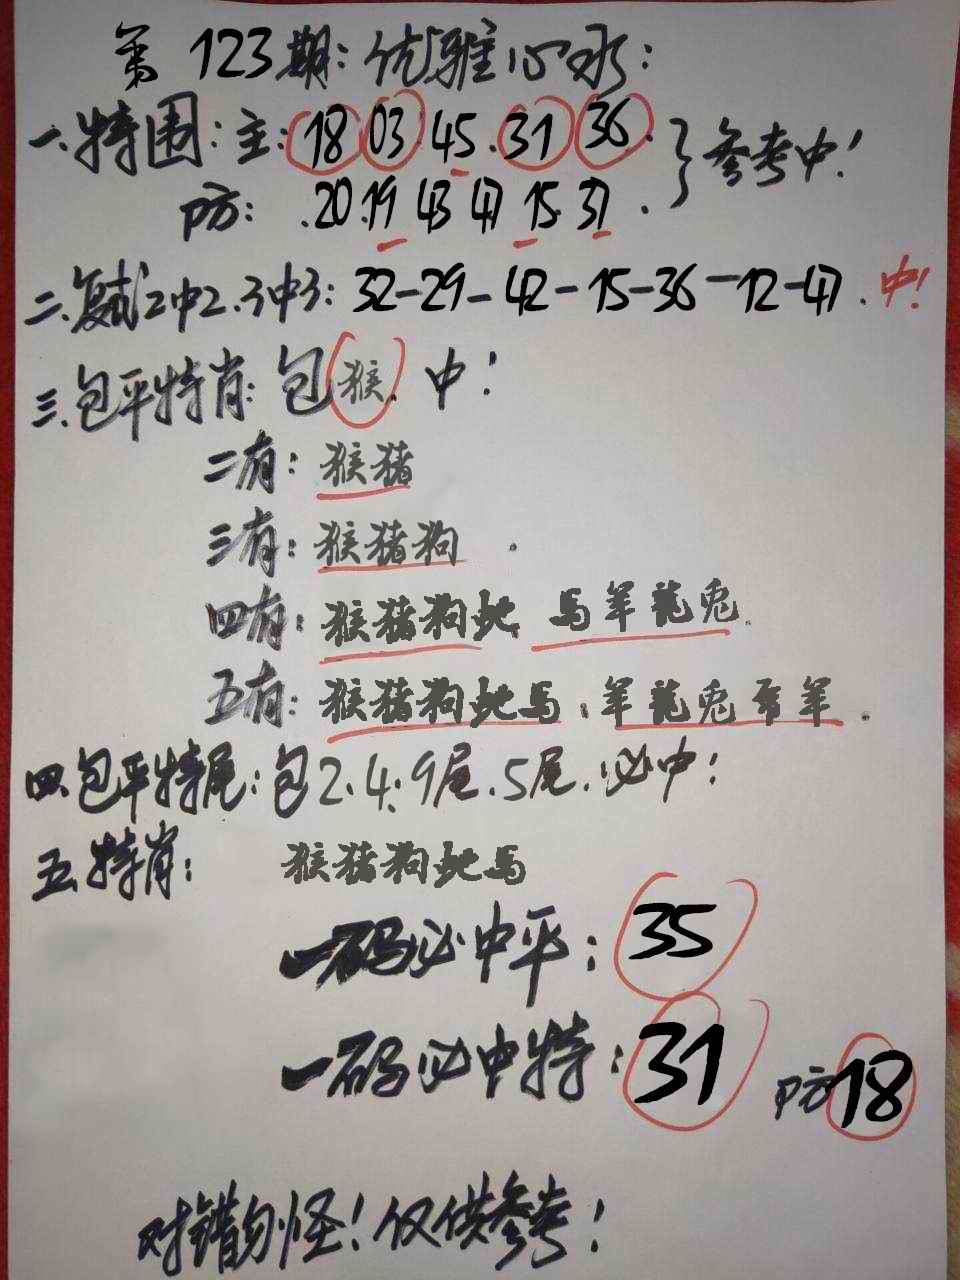 第123期：优雅心水：
一.特围：主：18 03 45.31 36. }参考中！
防：.20.19 43 47 15.37.
二.复式2中2.3中3：32-29-42-15-36-12-47.中！
三.包平特肖：包猴.中！
二有：猴猪
三有：猴猪狗.
四有：猴猪狗蛇 马羊龍兔.
五有：猴猪狗蛇马.羊龍兔 羊.
四.包平特尾：包2.4.9尾.5尾.必中！
五.特肖：猴猪狗蛇马
一码必中平：35
一码必中特：31 防18
对错勿怪！仅供参考！